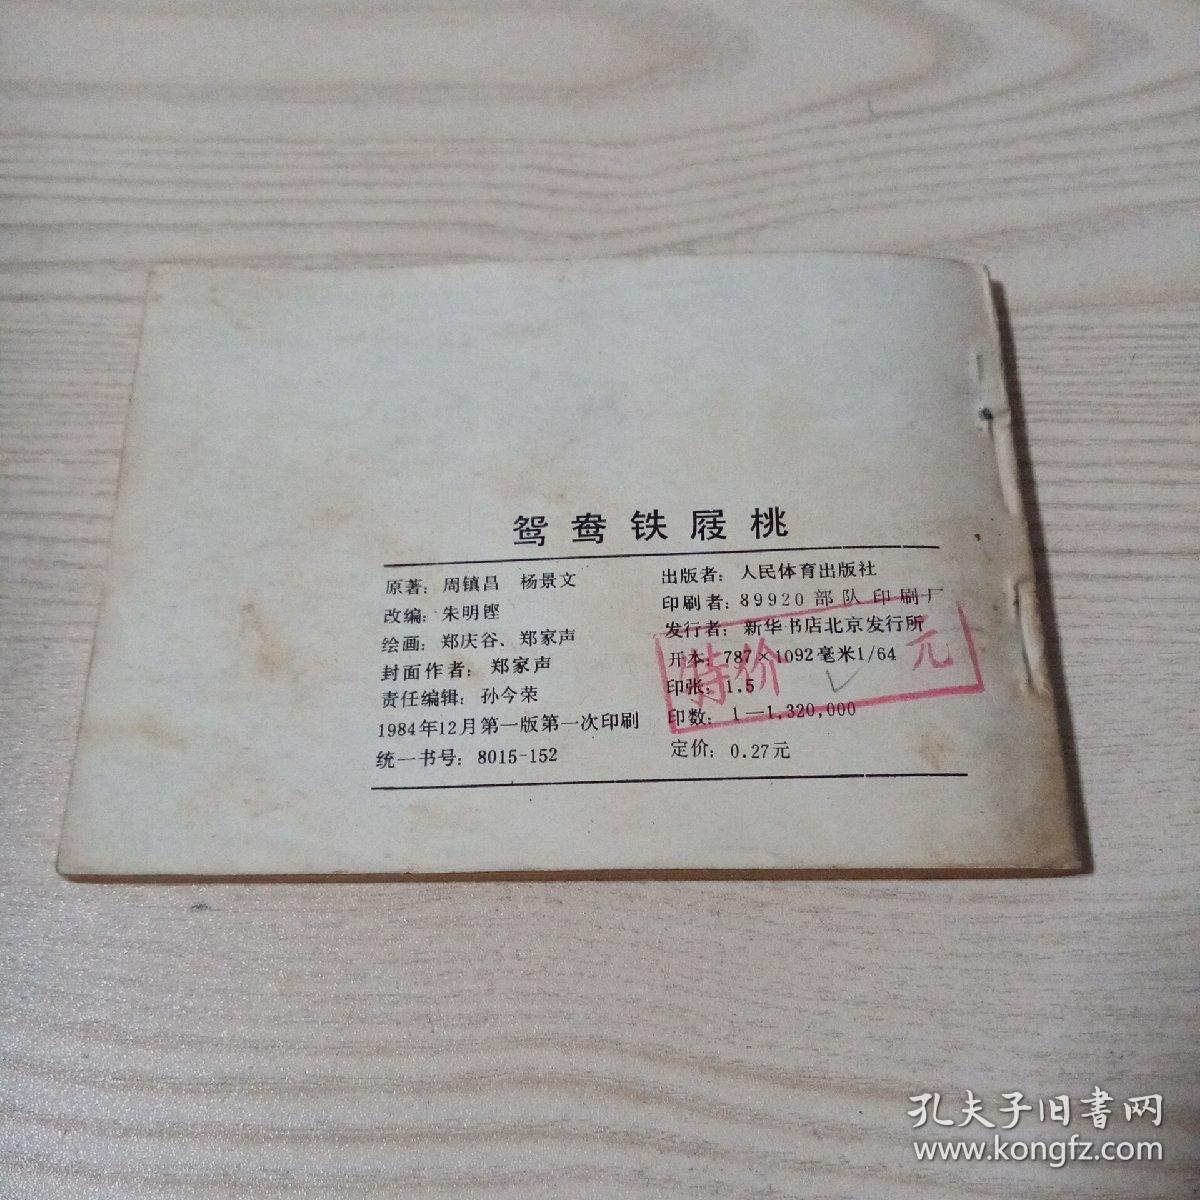 鸳鸯铁屐桃
原著：周镇昌 杨景文
改编：朱明铿
绘画：郑庆谷、郑家声
封面作者：郑家声
责任编辑：孙今荣
1984年12月第一版第一次印刷
统一书号：8015-152
出版者：人民体育出版社
印刷者：89920部队印刷厂
发行者：新华书店北京发行所
开本：787×1092毫米1/64
印张：1.5
印数：1—1,320,000
定价：0.27元
特价 元
孔夫子旧书网
www.kongfz.com